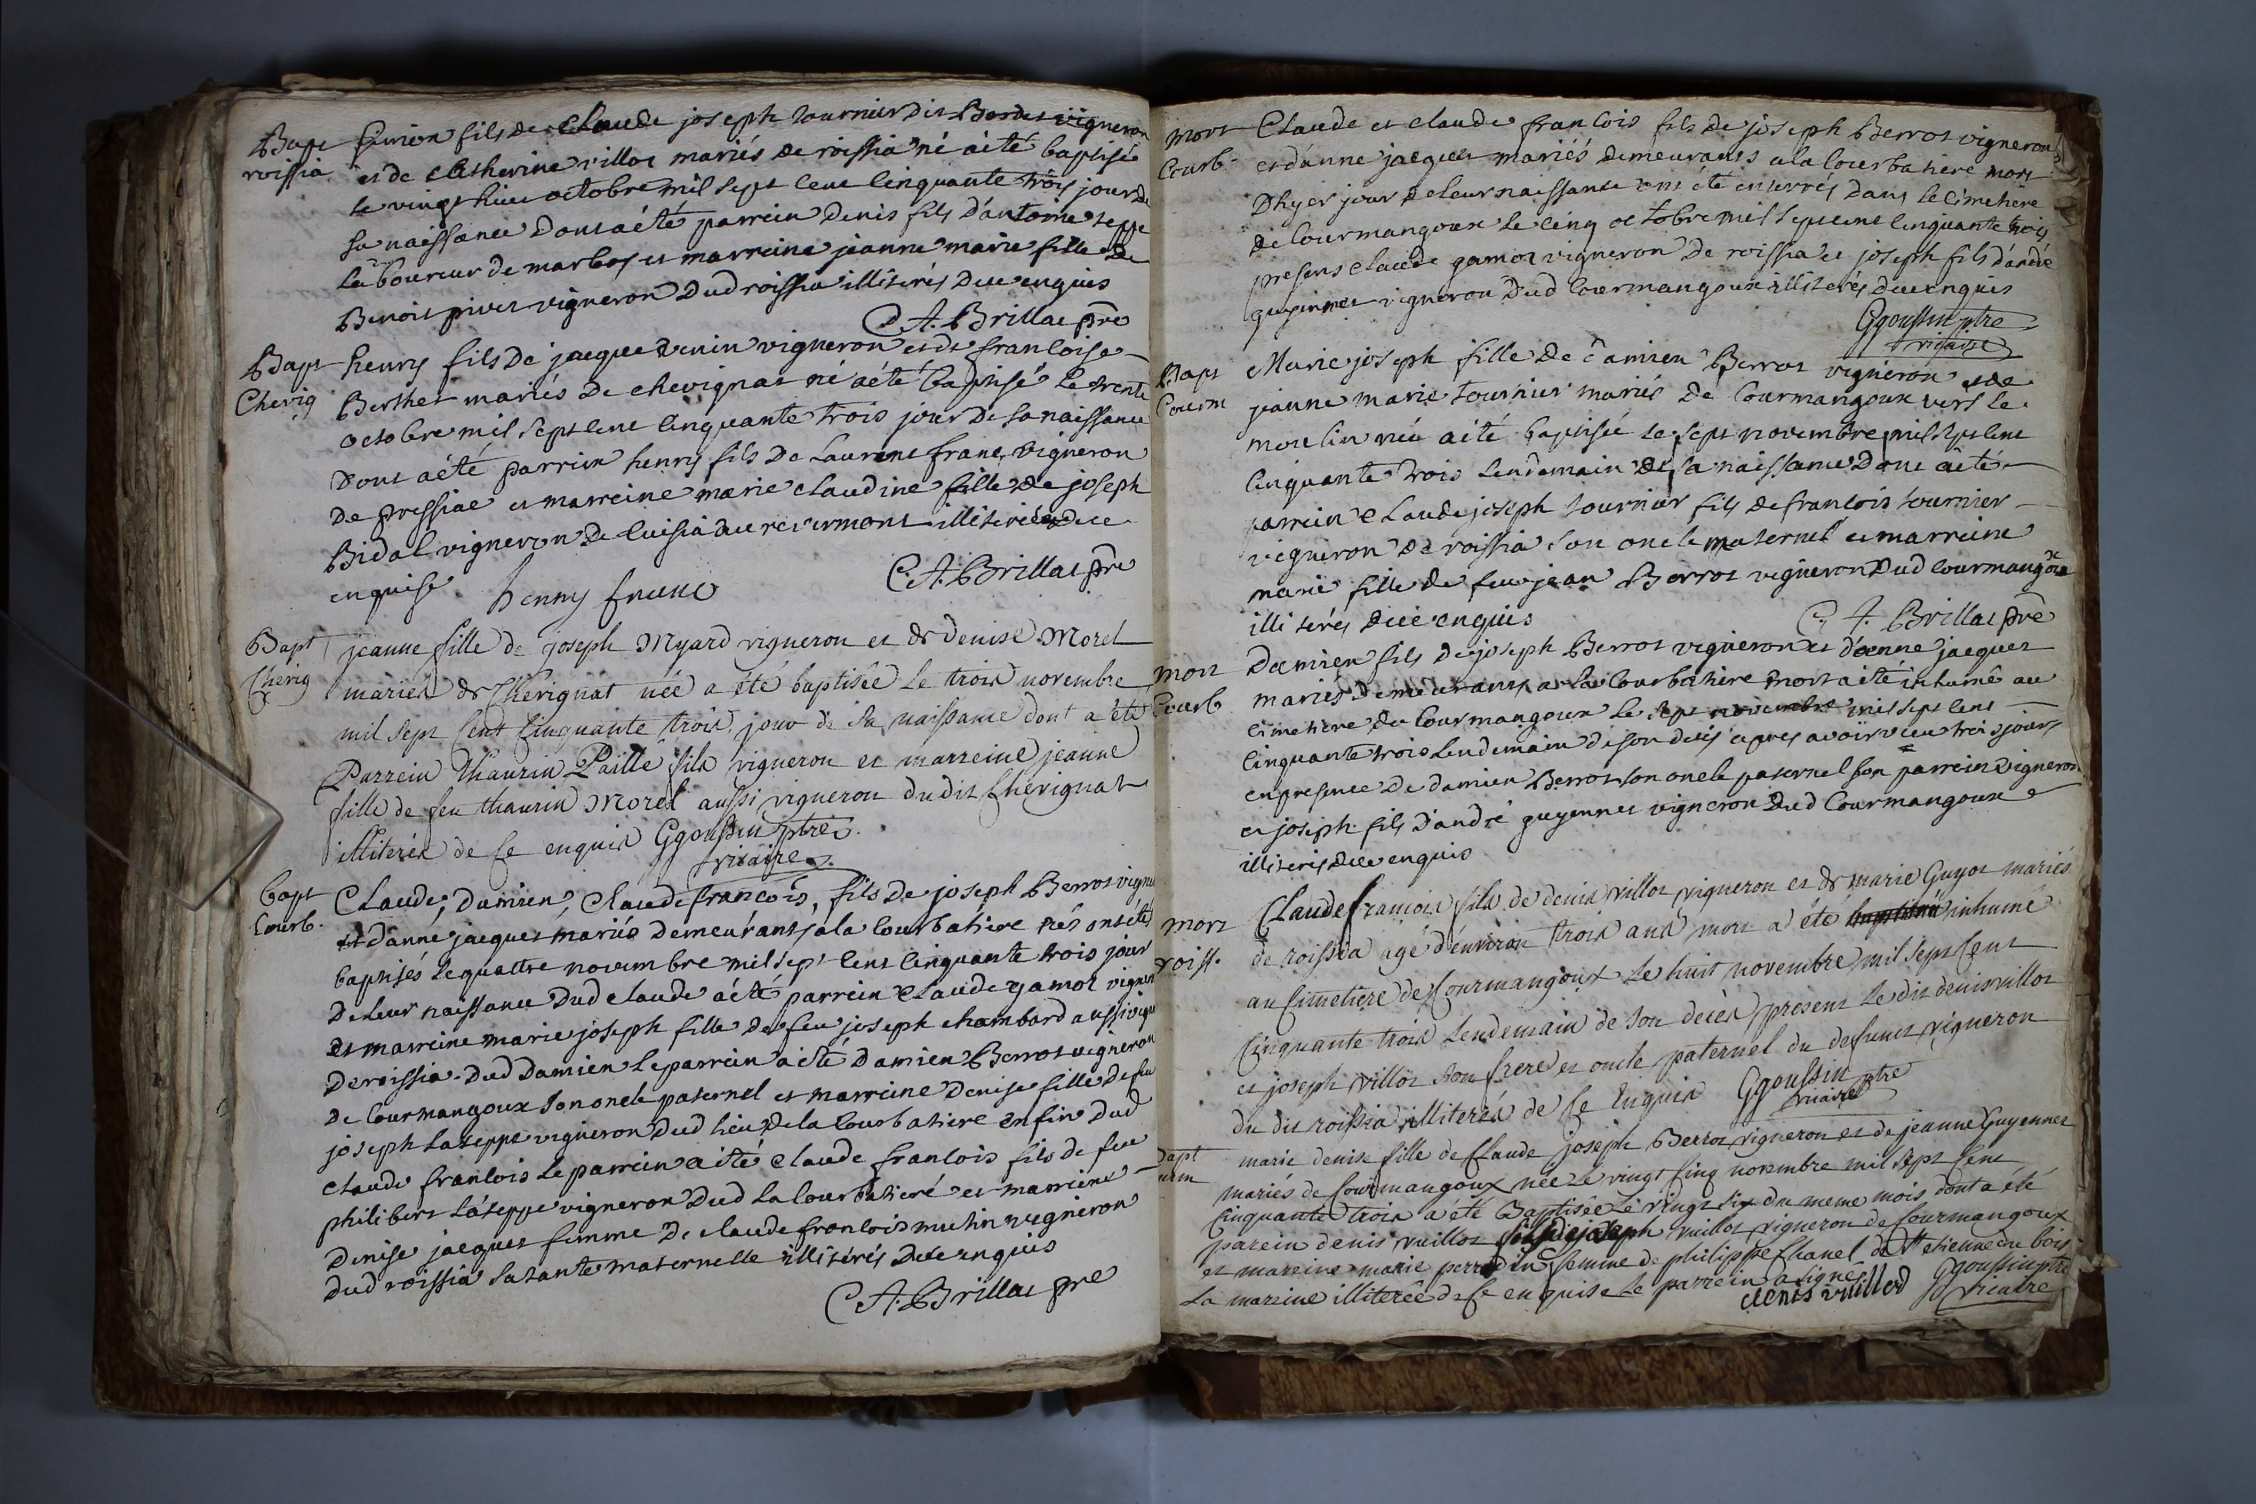 Bapt
roissia
fils de Claude joseph tournier dit Bordet vigneron
et de Catherine villot mariés de roissia né a été baptisé
le vingt huit octobre mil sept cent cinquante trois jour de
sa naissance dont a été parrein denis fils d'antoine
laboureur de marbos et marreine jeanne marie fille de
Benoit pivet vigneron dud roissia illiterés de ce enquis
C. A. Brillat pre
Bapt
Chevig
henry fils de jacque venin vigneron et de francoise
Berthet mariés de chevignat né a été baptisé le trente
octobre mil sept cent cinquante trois jour de sa naissance
dont a été parrein henry fils de Laurent franc vigneron
de pressiac et marreine marie claudine fille de joseph
Bidal vigneron de cuisia au revermont illiterée de ce
enquise henry franc C. A. Brillat pre
Bapt
Chevig
jeanne fille de joseph Myard vigneron et de denise Morel
mariés de Chevignat née a été baptisée le trois novembre
mil sept cent cinquante trois jour de sa naissance dont a été
Parrein thaurin Paille fils vigneron et marreine jeanne
fille de feu thaurin Morel aussi vigneron dudit Chevignat
illiterés de ce enquis Ggoussin ptre
vicaire
bapt
Courb.
Claude, Damien, Claude francois, fils de joseph Berrot vigne
et d'anne jacquet mariés demeurants a la Courbatiere nés ont été
baptisés le quattre novembre mil sept cent cinquante trois jour
de leur naissance dud claude a été parrein Claude gamot vigneron
et marreine marie joseph fille de feu joseph chambard aussi vigne
de roissia. dud Damien le parrein a été Damien Berrot vigneron
de Courmangoux son oncle paternel et marreine Denise fille de feu
joseph Lateppe vigneron dud lieu de la Courbatiere enfin dud
claude francois le parrein a été claude francois fils de feu
philibert Lateppe vigneron dud la Courbatiere et marreine
Denise jacquet femme de claude francois mutin vigneron
dud roissia sa tante maternelle illiterés de ce enquis
C. A. Brillat pre
mort
Courb.
Claude et claude francois fils de joseph Berrot vigneron
et d'anne jacquet mariés demeurants a la Courbatiere mort
d'hyer jour de leur naissance ont été enterrés dans le cimetiere
de Courmangoux le cinq octobre mil sept cent cinquante trois
presents claude gamot vigneron de roissia et joseph fils d'andré
guyennet vigneron dud Courmangoux illiterés de ce enquis
Ggoussin ptre
vicaire
Bapt
Courm
Marie joseph fille de damien Berrot vigneron et de
jeanne marie tournier mariés de Courmangoux vers le
moulin née a été baptisée le sept novembre mil sept cent
cinquante trois lendemain de sa naissance dont a été
parrein Claude joseph tournier fils de francois tournier
vigneron de roissia son oncle maternel et marreine
marie fille de feu jean Berrot vigneron dud Courmangoux
illiterés de ce enquis C. A. Brillat pre
mort
Courb
Damien fils de joseph Berrot vigneron et d'anne jacquet
mariés demeurants a la Courbatiere mort a été inhumé au
cimetiere de Courmangoux le sept novembre mil sept cent
cinquante trois lendemain de son deces apres avoir vecu trois jours
en presence de damien Berrot son oncle paternel son parrein vigneron
et joseph fils d'andré guyennet vigneron dud Courmangoux
illiterés de ce enquis
mort
roiss.
Claude francois fils de denis villot vigneron et de marie Guyot mariés
de roissia agé d'environ trois ans mort a été inhumé
au Cimetiere de Courmangoux le huit novembre mil sept cent
Cinquante trois lendemain de son decès present le dit denis villot
et joseph villot son frere et oncle paternel du defunct vigneron
du dit roissia illiterés de ce enquis Ggoussin ptre
vicaire
bapt
urm
marie denise fille de Claude joseph Berrot vigneron et de jeanne Guyennet
mariés de Courmangoux née le vingt cinq novembre mil sept cent
Cinquante trois a été Baptisée le vingt six du meme mois dont a été
parein denis vuillot fils de joseph vuillot vigneron de Courmangoux
et mareine marie perrodin femme de philippe Chanel de St etienne du bois
La mareine illiterée de ce enquise le parrein a signé Ggoussin ptre
denis vuillod vicaire